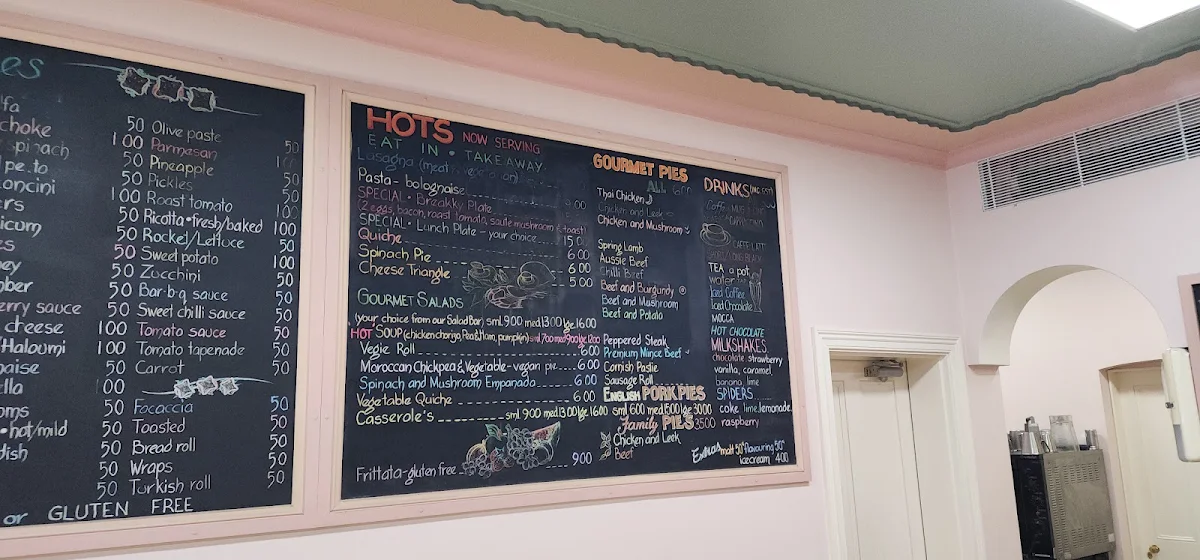 es
fa
choke 50 Olive paste 50
spinach 100 Parmesan 100
pe.to 50 Pineapple 50
oncini 50 Pickles 50
ers 100 Roast tomato 100
icum 50 Ricotta•fresh/baked 100
es 50 Rocket/Lettuce 50
ey 50 Sweet potato 100
mber 50 Zucchini 50
50 Bar-b-q sauce 50
erry sauce 50 Sweet chilli sauce 50
cheese 100 Tomato sauce 50
/Haloumi 100 Tomato tapenade 50
naise 50 Carrot 50
ella 100
oms 50 Focaccia 50
•hot/mild 50 Toasted 50
dish 50 Bread roll 50
50 Wraps 50
50 Turkish roll 50
or GLUTEN FREE
HOTS NOW SERVING
EAT IN • TAKEAWAY
Lasagna
Pasta - bolognaise
SPECIAL • Breakky Plate
(2 eggs, bacon, roast tomato, saute mushroom & toast)
SPECIAL • Lunch Plate - your choice 15 0
Quiche 6 00
Spinach Pie 6 00
Cheese Triangle 5 00
GOURMET SALADS
(your choice from our Salad Bar) sml 9.00 med 13.00 lge 16.00
HOT SOUP (chicken chorizo, Pea & Ham, pumpkin) sml 7.00 med 9.00 lge 12.00
Vegie Roll 6.00
Moroccan Chickpea & Vegetable - vegan pie 6 00
Spinach and Mushroom Empanada 6 00
Vegetable Quiche 6 00
Casserole's sml 9.00 med 13.00 lge 16.00
Frittata - gluten free 9.00
GOURMET PIES
ALL 6.00
Thai Chicken
Chicken and Leek
Chicken and Mushroom
Spring Lamb
Aussie Beef
Chilli Beef
Beef and Burgundy
Beef and Mushroom
Beef and Potato
Peppered Steak
Premium Mince Beef
Cornish Pastie
Sausage Roll
ENGLISH PORK PIES
sml 6.00 med 15.00 lge 30.00
Family PIES 35.00
Chicken and Leek
Beef
DRINKS
Coffee
TEA a pot
water
Iced Coffee
Iced Chocolate
MOCCA
HOT CHOCOLATE
MILKSHAKES
chocolate, strawberry
vanilla, caramel,
banana, lime
SPIDERS
coke, lime, lemonade,
raspberry
Extras malt 50 flavouring 50
icecream 4.00